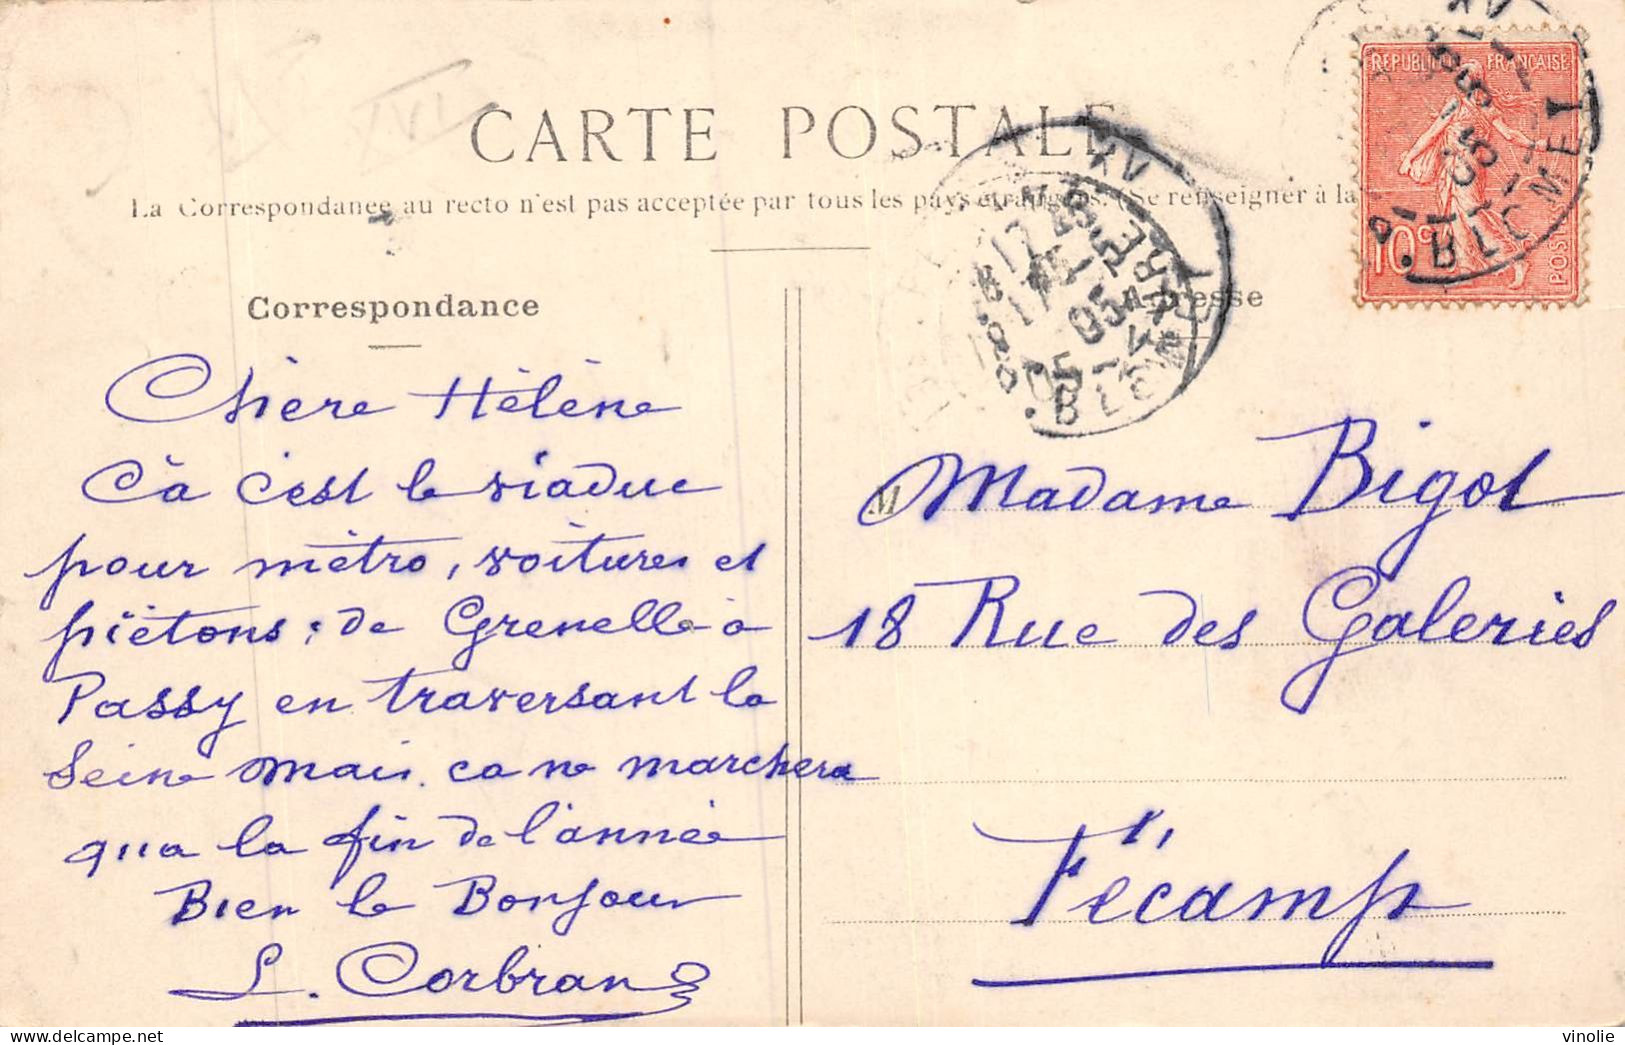 CARTE POSTALE
La Correspondance au recto n'est pas acceptée par tous les pays étrangers. (Se renseigner à la
Correspondance
Chère Hélène
Cà c'est le viaduc
pour mètro, voitures et
piètons; de Grenelle à
Passy en traversant la
Seine mais ca ne marchera
qua la fin de l'année
Bien le Bonjour
L. Corbran
Adresse
REPUBLIQUE FRANÇAISE
10c
POSTES
BLOMET
05
XV
M Madame Bigot
18 Rue des Galeries
Fécamp
vinolie